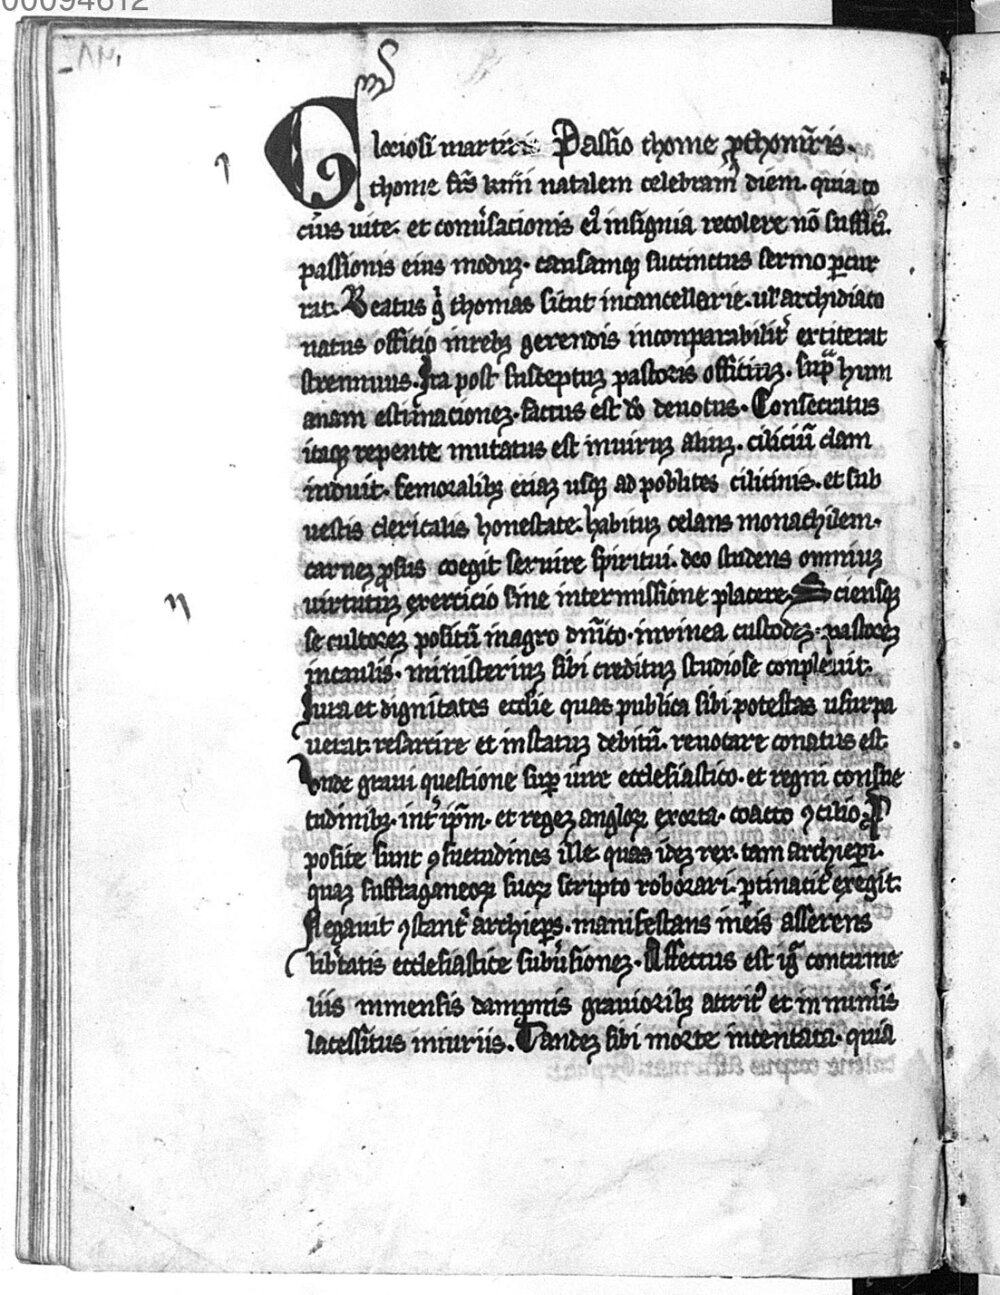 00094612
Gloriosi martiris Passio thome ꝑthomr̄is.
thome frs̄ kmī natalem celebram᷑ diem. quia to
cius uite. et conuͥsacionis eiꝰ insignia recolere nō suffici.
passionis eius moduꝫ. causamqꝫ succinctus sermo ꝑcur
rat. Beatus gͥ thomas sicut incancellarie. ul' archidiaco
natus officio inrebꝫ gerendis inconparabilit᷑ extiterat
strennuus. Ita post susceptuꝫ pastoris officiuꝫ. sup̄ hum
anam estimacioneꝫ. factus est dō deuotus. Consecratus
itaqꝫ repente mutatus est inuiruꝫ aliuꝫ. ciliciū clam
induit. femoralibꝫ eciaꝫ usqꝫ ad poblites cilicinis. et sub
uestis clericalis honestate. habituꝫ celans monachilem.
carneꝫ ꝓsus coegit seruire spiritui. deo studens omniuꝫ
uirtutuꝫ exercicio sine intermissione placere. Sciensqꝫ
se cultoreꝫ positū inagro dn̄ico. inuinea custodeꝫ. pastoreꝫ
incaulis. ministeriuꝫ sibi credituꝫ studiose conpleuit.
Iura et dignitates ecclīe quas publica sibi potestas usurpa
uerat. resarcire et instatuꝫ debitū. reuocare conatus est
Vnde graui questione suꝑ iure ecclesiastico. et regni consue
tudinibꝫ. int᷑ ip̄m. et regeꝫ angloꝝ exorta. coacto ꝯcilio. ꝓ
posite sunt ꝯsuetudines ille. quas ideꝫ rex. tam archiepī.
quaꝫ suffraganeoꝝ suoꝝ scripto roborari. ꝑtinacit᷑ exegit.
Negauit ꝯstant᷑ archiep̄s. manifestans ineis asserens
lib᷑tatis ecclesiastice subu᷑sioneꝫ. Affectus est igͣ contume
liis inmensis dampnis grauioribꝫ attritꝰ et innum᷑is
lacessitus iniuriis. Tandeꝫ sibi morte intentata. quia